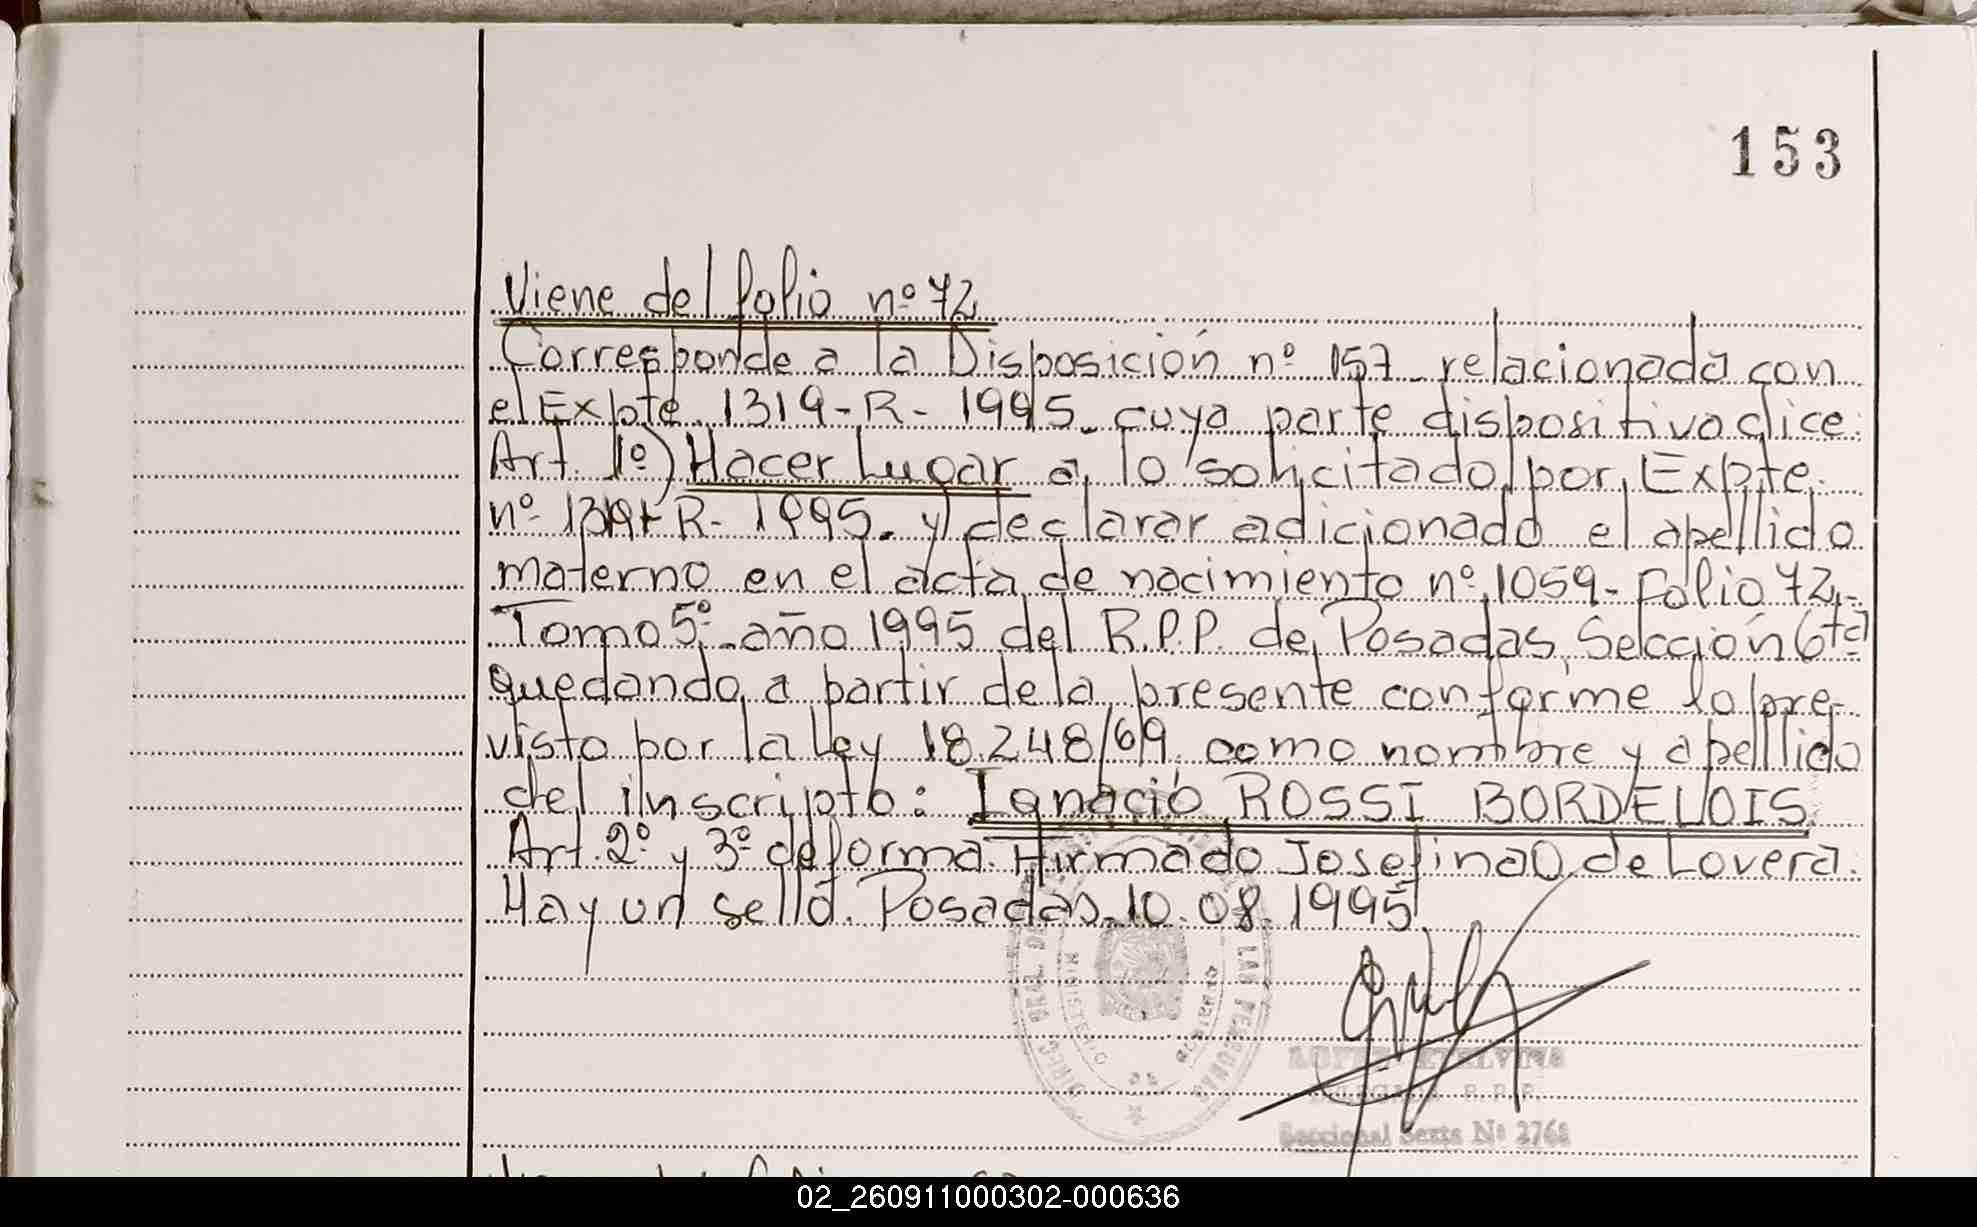 153
Viene del folio nº 72
Corresponde a la Disposición nº 157 relacionada con
el Expte. 1319-R-1995. cuya parte dispositiva dice:
Art. 1º) Hacer Lugar a lo solicitado por Expte.
nº 1319-R-1995. y declarar adicionado el apellido
materno en el acta de nacimiento nº 1059-Folio 72.-
Tomo 5º-año 1995 del R.P.P. de Posadas, Sección 6ta
quedando a partir de la presente conforme lo pre-
visto por la ley 18.248/69. como nombre y apellido
del inscripto: Ignacio ROSSI BORDELOIS.
Art. 2º y 3º de forma. Firmado Josefina O de Lovera.
Hay un sello. Posadas 10.08.1995
LAS PERSONAS
MINISTERIO
R. P. P.
Seccional Sexta Nº 2768
02_260911000302-000636